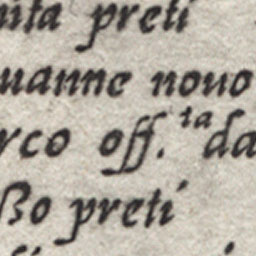 nita preti
uanne nouo
rco off.ta da
ßo preti